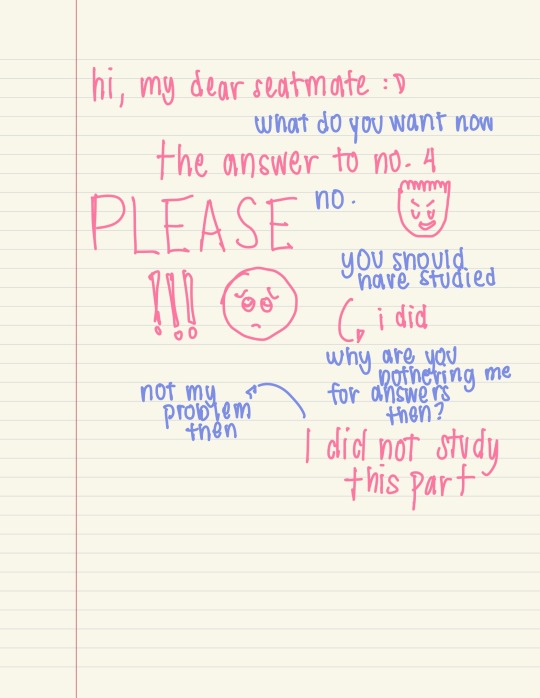 hi, my dear seatmate :D
what do you want now
the answer to no. 4
PLEASE
no.
!!!
you should
have studied
i did
why are you
bothering me
for answers
then?
I did not study
this part
not my
problem
then